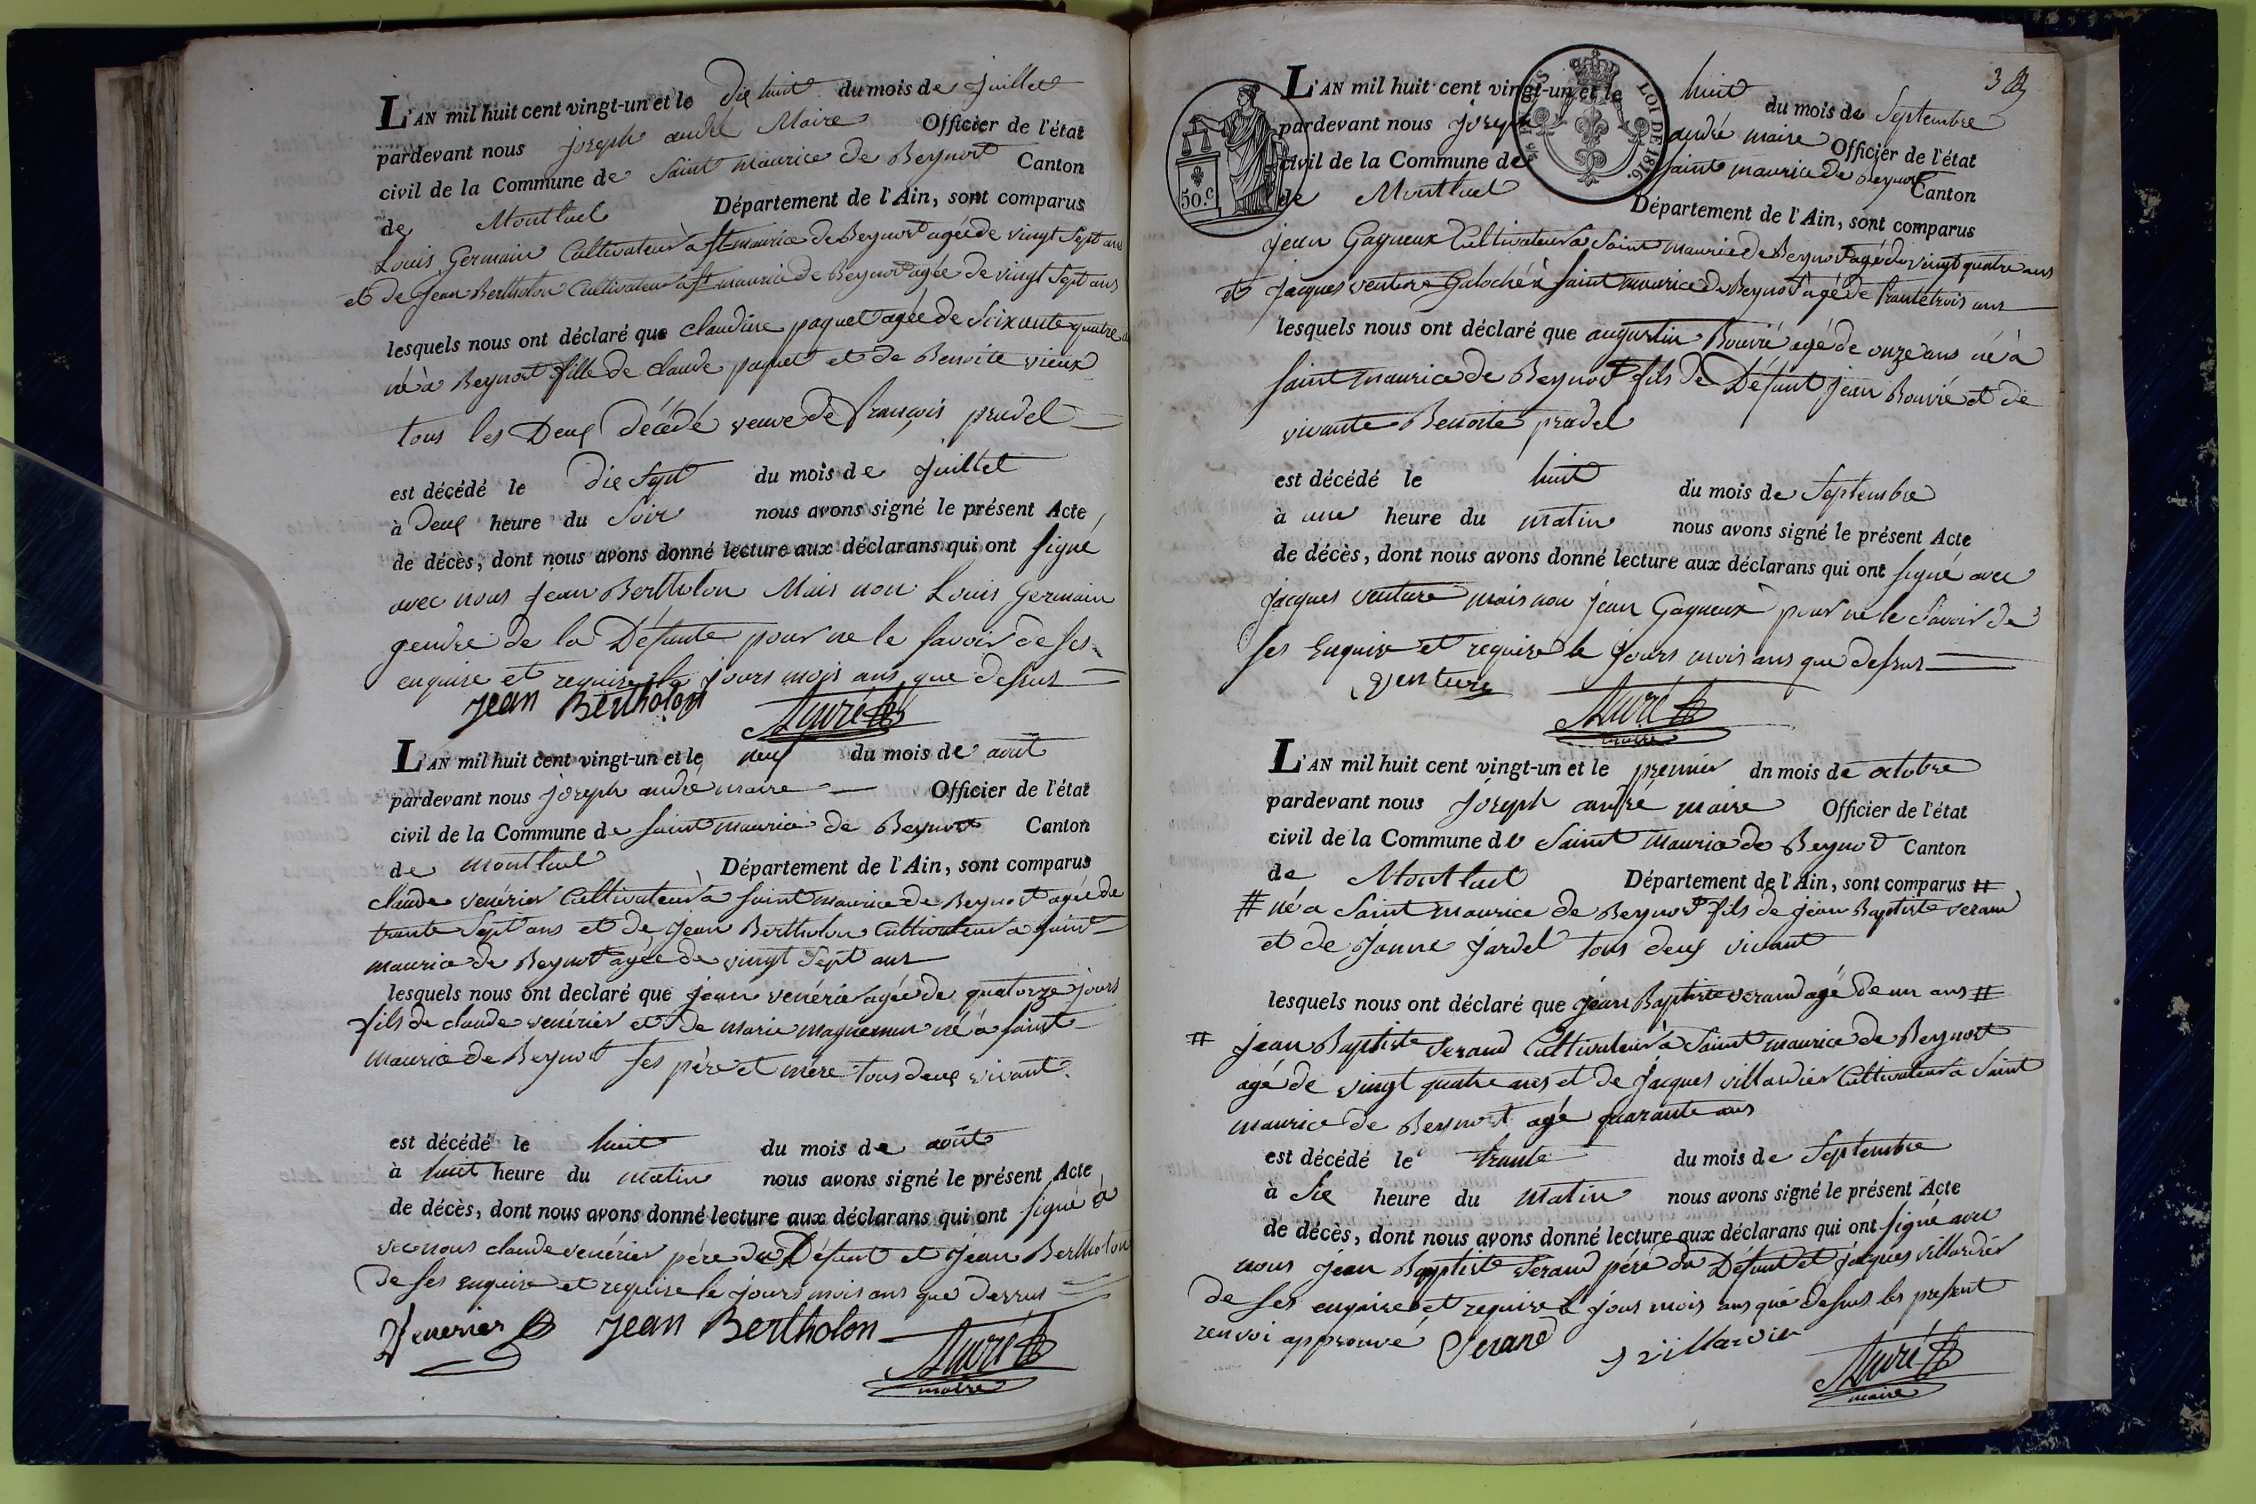 L'AN mil huit cent vingt-un et le dix huit du mois de juillet
pardevant nous joseph andré Maire Officier de l'état
civil de la Commune de Saint maurice de Beynost Canton
de Montluel Département de l'Ain, sont comparus
Louis Germain Cultivateur à st maurice de Beynost agée de vingt Sept ans
et de Jean Bertholon Cultivateur à st maurice de Beynost agée de vingt Sept ans
lesquels nous ont déclaré que claudine paquet agée de Soixante quatre
né à Beynost fille de claude paquet et de Benoite vieux
tous les Deux décédé veuve de françois pradel
est décédé le dix Sept du mois de juillet
à Deux heure du Soir nous avons signé le présent Acte
de décès, dont nous avons donné lecture aux déclarans qui ont signé
avec nous Jean Bertholon Mais non Louis Germain
gendre de la Défunte pour ne le savoir de ses
enquire et require le jours mois ans que dessus
Jean Bertholon André
L'AN mil huit cent vingt-un et le neuf du mois de août
pardevant nous joseph andré maire Officier de l'état
civil de la Commune de saint maurice de Beynost Canton
de montluel Département de l'Ain, sont comparus
claude venérier Cultivateur à saint maurice de Beynost agée de
trante Sept ans et de Jean Bertholon Cultivateur à saint
maurice de Beynost agée de vingt Sept ans
lesquels nous ont declaré que jean venérier agée de quatorze jours
fils de claude venérier et de marie né à saint
maurice de Beynost ses père et mère tous deux vivant.
est décédé le huit du mois de août
à huit heure du matin nous avons signé le présent Acte
de décès, dont nous avons donné lecture aux déclarans qui ont signé a
vec nous claude venérier père du Défunt et Jean Bertholon
de ses enquire et require le jours mois ans que dessus
Venerier Jean Bertholon André
maire
3
50.C
LOI DE 1816.
L'AN mil huit cent vingt-un et le huit du mois de Septembre
pardevant nous joseph andré maire Officier de l'état
civil de la Commune de saint maurice de Beynost Canton
de Montluel Département de l'Ain, sont comparus
jean Gagneux Cultivateur à Saint maurice de Beynost agé de vingt quatre ans
et Jacques venture Galoché à saint maurice de Beynost agé de trante trois ans
lesquels nous ont déclaré que augustin Bouvié agé de onze ans né à
saint maurice de Beynost fils de Défunt jean Bouvié et de
vivante Benoite pradel
est décédé le huit du mois de Septembre
à une heure du matin nous avons signé le présent Acte
de décès, dont nous avons donné lecture aux déclarans qui ont signé avec
Jacques venture mais non jean Gagneux pour ne le Savoir de
ses Enquire et require le jours mois ans que dessus
Venture André
maire
L'AN mil huit cent vingt-un et le premier dn mois de octobre
pardevant nous joseph andré maire Officier de l'état
civil de la Commune de Saint maurice de Beynost Canton
de Montluel Département de l'Ain, sont comparus #
# né a Saint maurice de Beynost fils de jean Baptiste Serand
et de Janne jardel tous deux vivant
lesquels nous ont déclaré que jean Baptiste Serand agé de un ans #
# jean Baptiste Serand Cultivateur à Saint maurice de Beynost
agé de vingt quatre ans et de Jacques villardier Cultivateur à Saint
maurice de Beynost agé quarante ans
est décédé le trante du mois de Septembre
à Six heure du matin nous avons signé le présent Acte
de décès, dont nous avons donné lecture aux déclarans qui ont signé avec
nous jean Baptiste Serand père du Défunt et jacques villardier
de ses enquire et require le jous mois ans que dessus les present
renvoi approuvé Serand
villardier André
maire